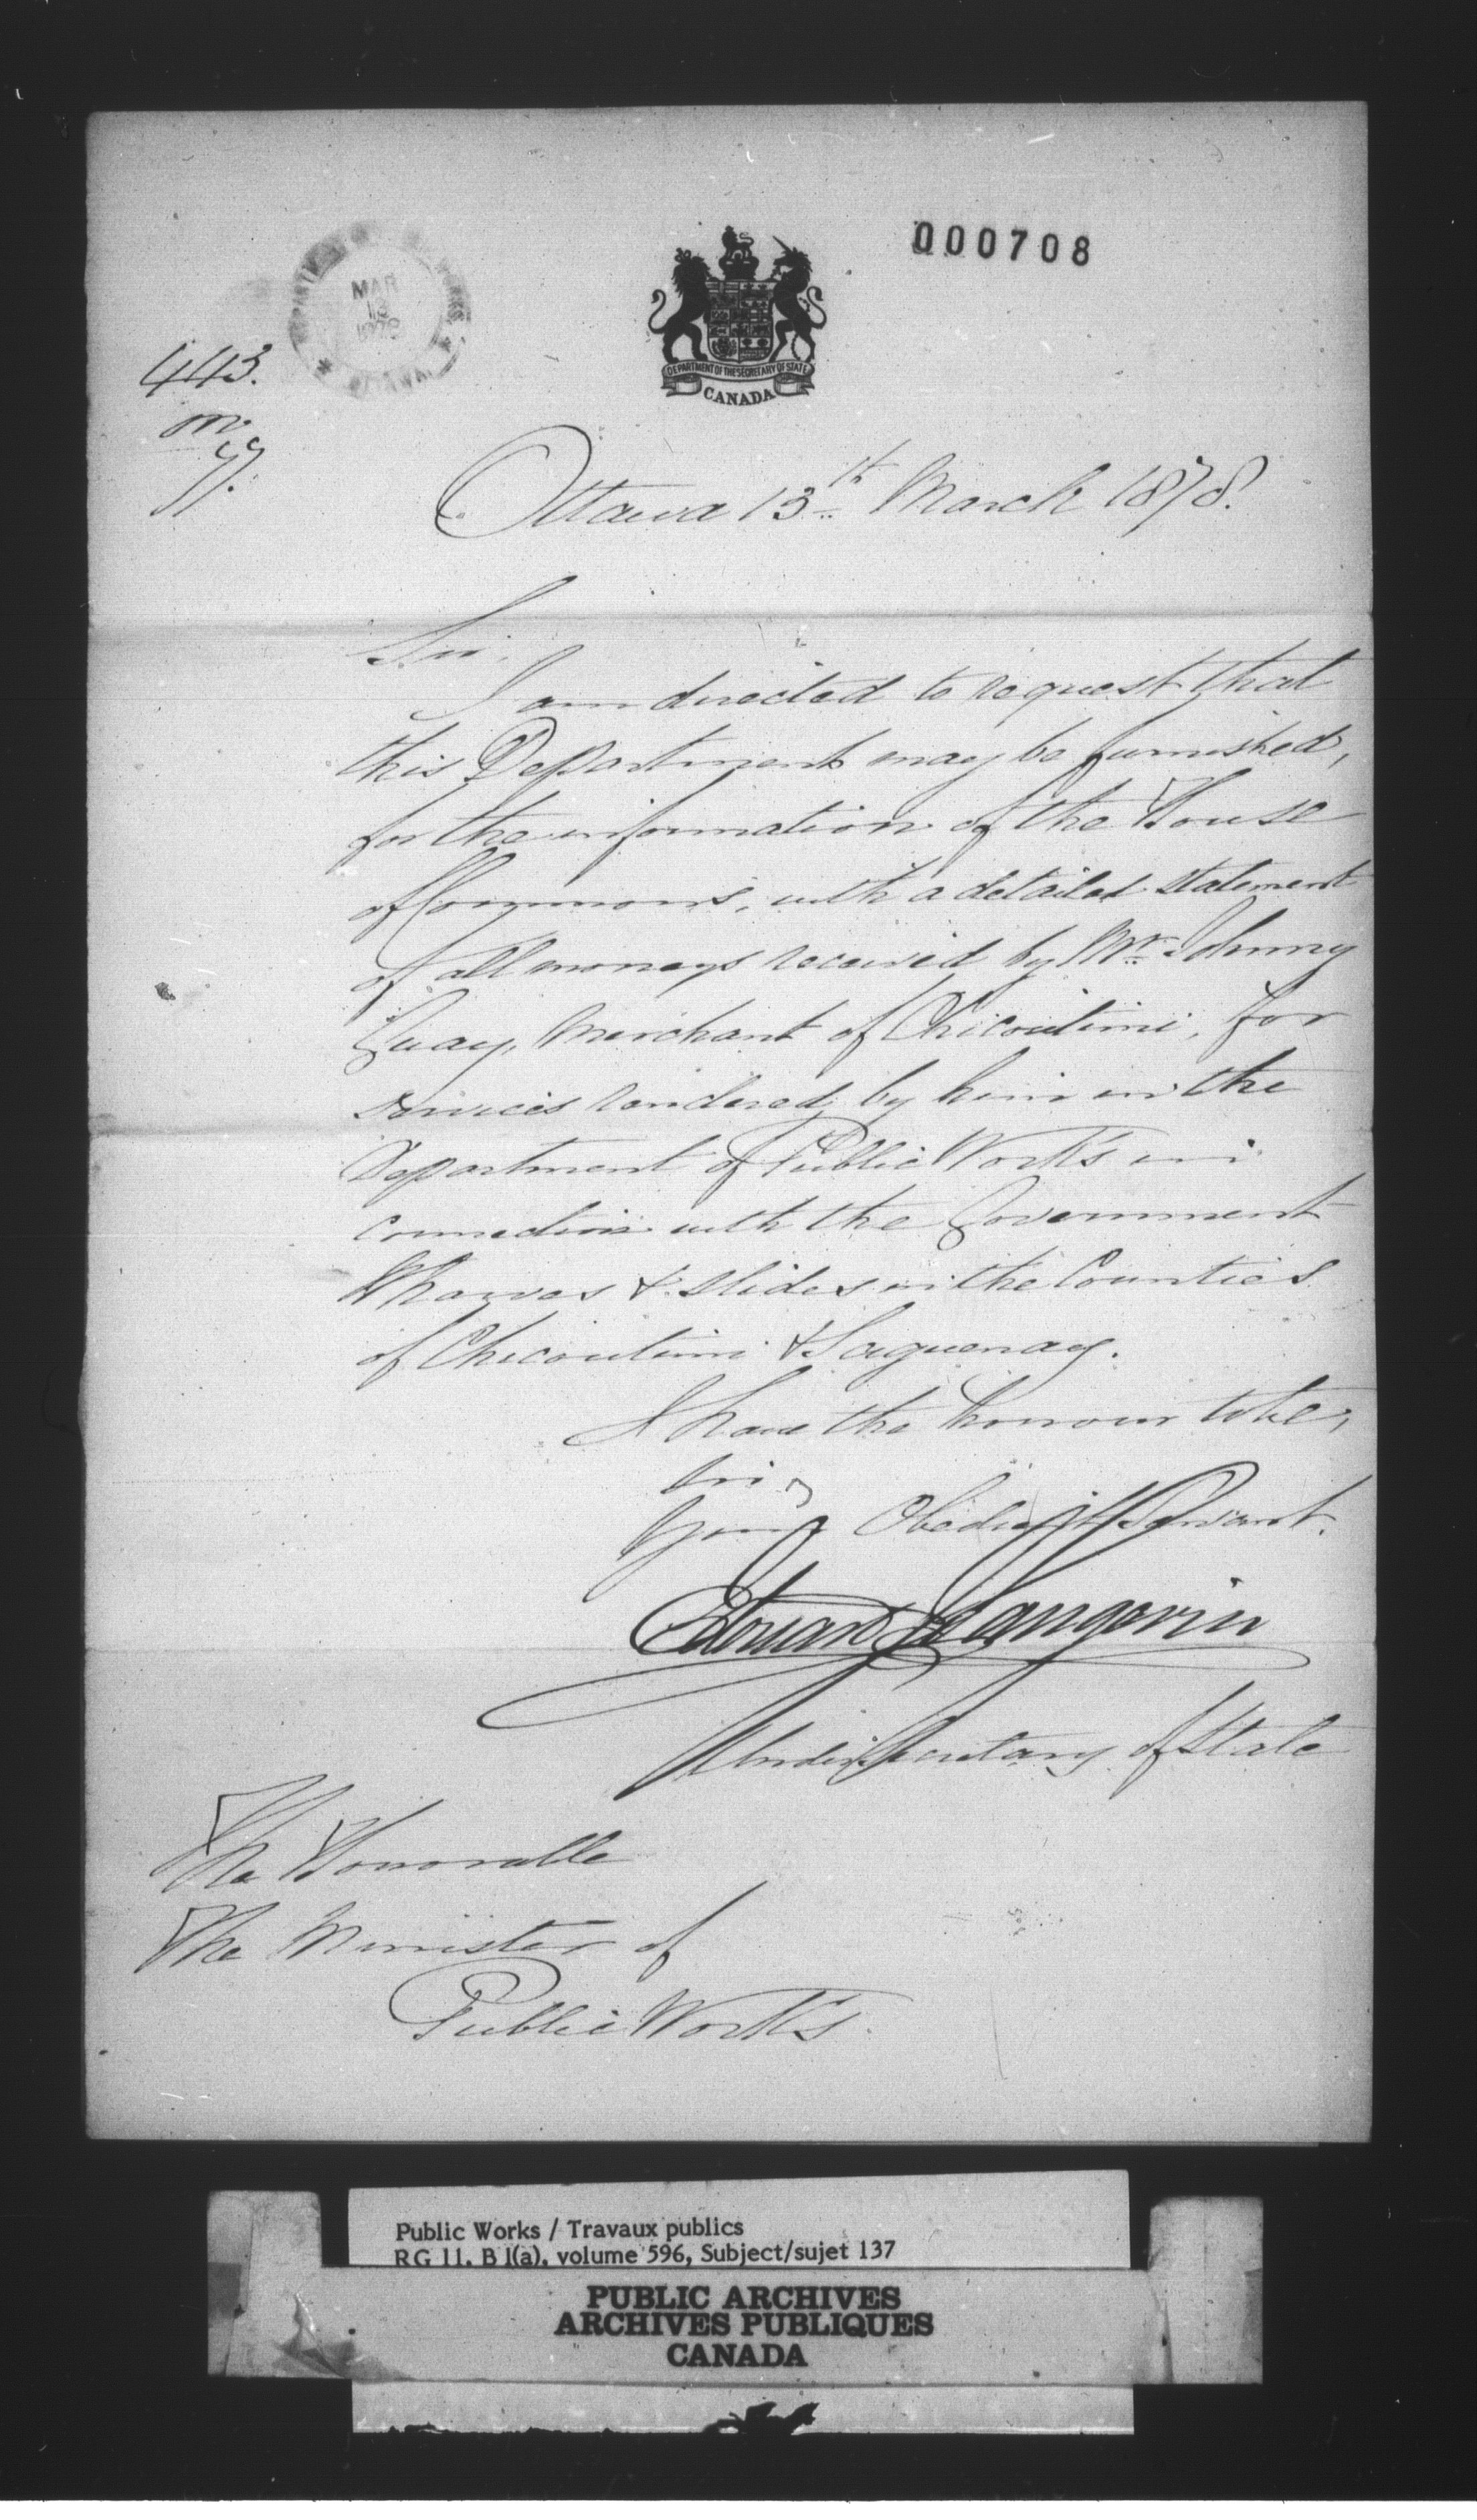 000708
MAR
13
1878
OTTAWA
DEPARTMENT OF THE SECRETARY OF STATE
CANADA
443.
Ottawa 13th March 1878.
Sir,
I am directed to request that
this Department may be furnished,
for the information of the House
of Commons, with a detailed statement
of all moneys received by Mr. Johnny
Guay, Merchant of Chicoutimi, for
services rendered by him in the
Department of Public Works in
connection with the Government
Wharves & slides in the Counties
of Chicoutimi & Saguenay.
I have the honour to be,
Sir,
Your Obedient Servant.
Edouard J. Langevin
Under Secretary of State
The Honorable
The Minister of
Public Works.
Public Works / Travaux publics
RG 11, B 1(a), volume 596, Subject/sujet 137
PUBLIC ARCHIVES
ARCHIVES PUBLIQUES
CANADA